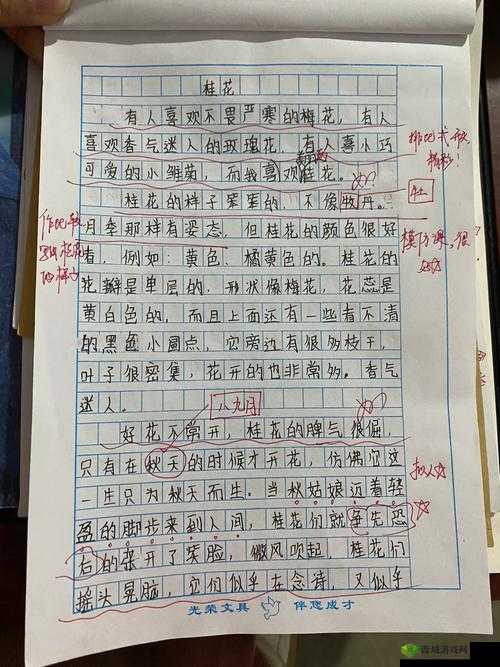 桂花
有人喜欢不畏严寒的梅花，有人
喜欢香气迷人的玫瑰花，有人喜小巧
可爱的小雏菊，而我喜欢桂花。
桂花的样子笨笨的，不像牡丹。
月季那样有姿态，但桂花的颜色很好
看，例如：黄色、橘黄色的。桂花的
花瓣是单层的，形状像梅花，花蕊是
黄白色的，而且上面还有一些看不清
的黑色小圆点，它旁边有很多枝干，
叶子很密集，花开的也非常多。香气
迷人。
八九月
好花不常开，桂花的脾气很倔，
只有在秋天的时候才开花，仿佛它这
一生只为秋天而生。当秋姑娘迈着轻
盈的脚步来到人间，桂花们就争先恐
后的张开了笑脸，微风吹起，桂花们
摇头晃脑，它们似乎在念诗，又似乎
排比式
精彩！
牡
作比较
的样子
拟人
光荣文具 伴您成才